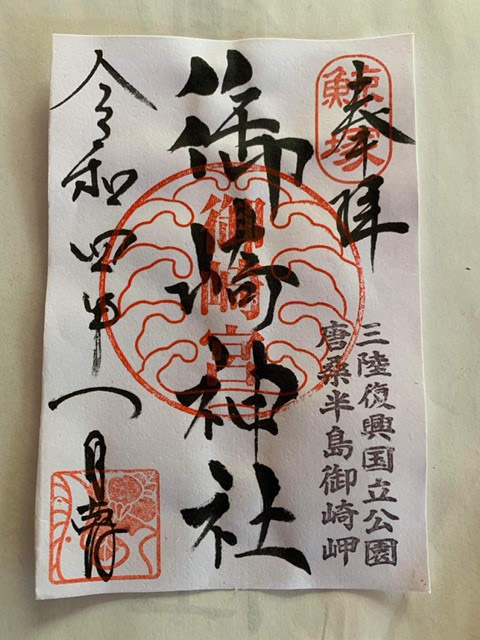 奉拝
鯨塚
三陸復興国立公園
唐桑半島御崎岬
御崎神社
御崎宮
令和四年一月